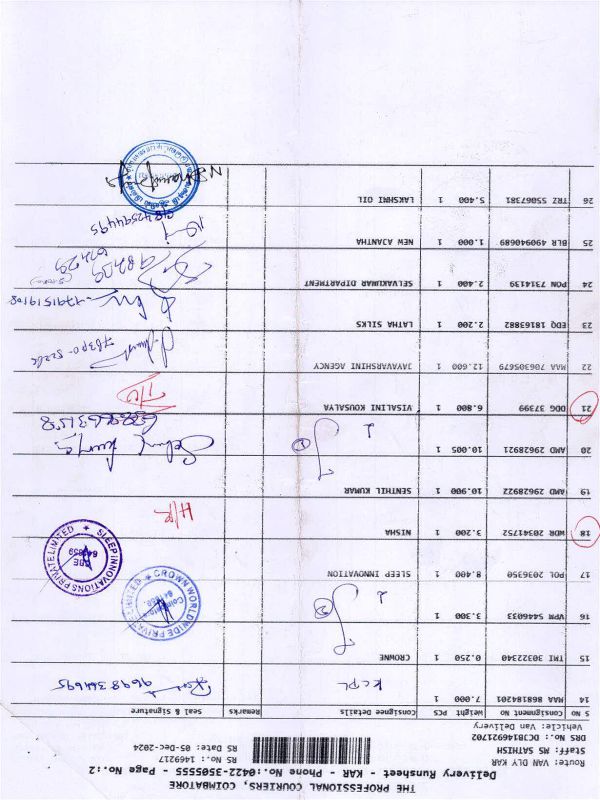 THE PROFESSIONAL COURIERS, COIMBATORE
Delivery Runsheet - KAR - Phone No.:0422-3505555 - Page No.:2
Route: VAN DLY KAR
RS No.: 1469217
Staff: MS SATHISH
RS Date: 05-Dec-2024
DRS No.: DCB814692l702
Vehicle: Van Delivery
S NO Consignment No Weight PCS Consignee Details Remarks Seal & Signature
14 MAA 868184201 7.000 1 KCPL 9698364695
15 TMI 30322340 0.250 1 CROWNE
16 VPM 5446033 3.300 1 2
CROWN WORLDWIDE PRIVATE LIMITED
17 POL 2036350 8.400 1 SLEEP INNOVATION
SLEEP INNOVATIONS PRIVATE LIMITED
CBE
18 WDR 20341752 3.200 1 NISHA H/R
19 AMD 29628922 10.900 1 SENTHIL KUMAR
20 AMD 29628921 10.005 1 2
21 DDG 37399 6.800 1 VISALINI KOUSALYA
22 MAA 706305679 12.600 1 JAYAVARSHINI AGENCY
23 EDQ 18163882 2.200 1 LATHA SILKS
24 PON 7314139 2.400 1 SELVAKUMAR DIPARTMENT
25 BLR 490940689 1.000 1 NEW AJANTHA 9842594495
26 TRZ 55067381 5.400 1 LAKSHMI OIL